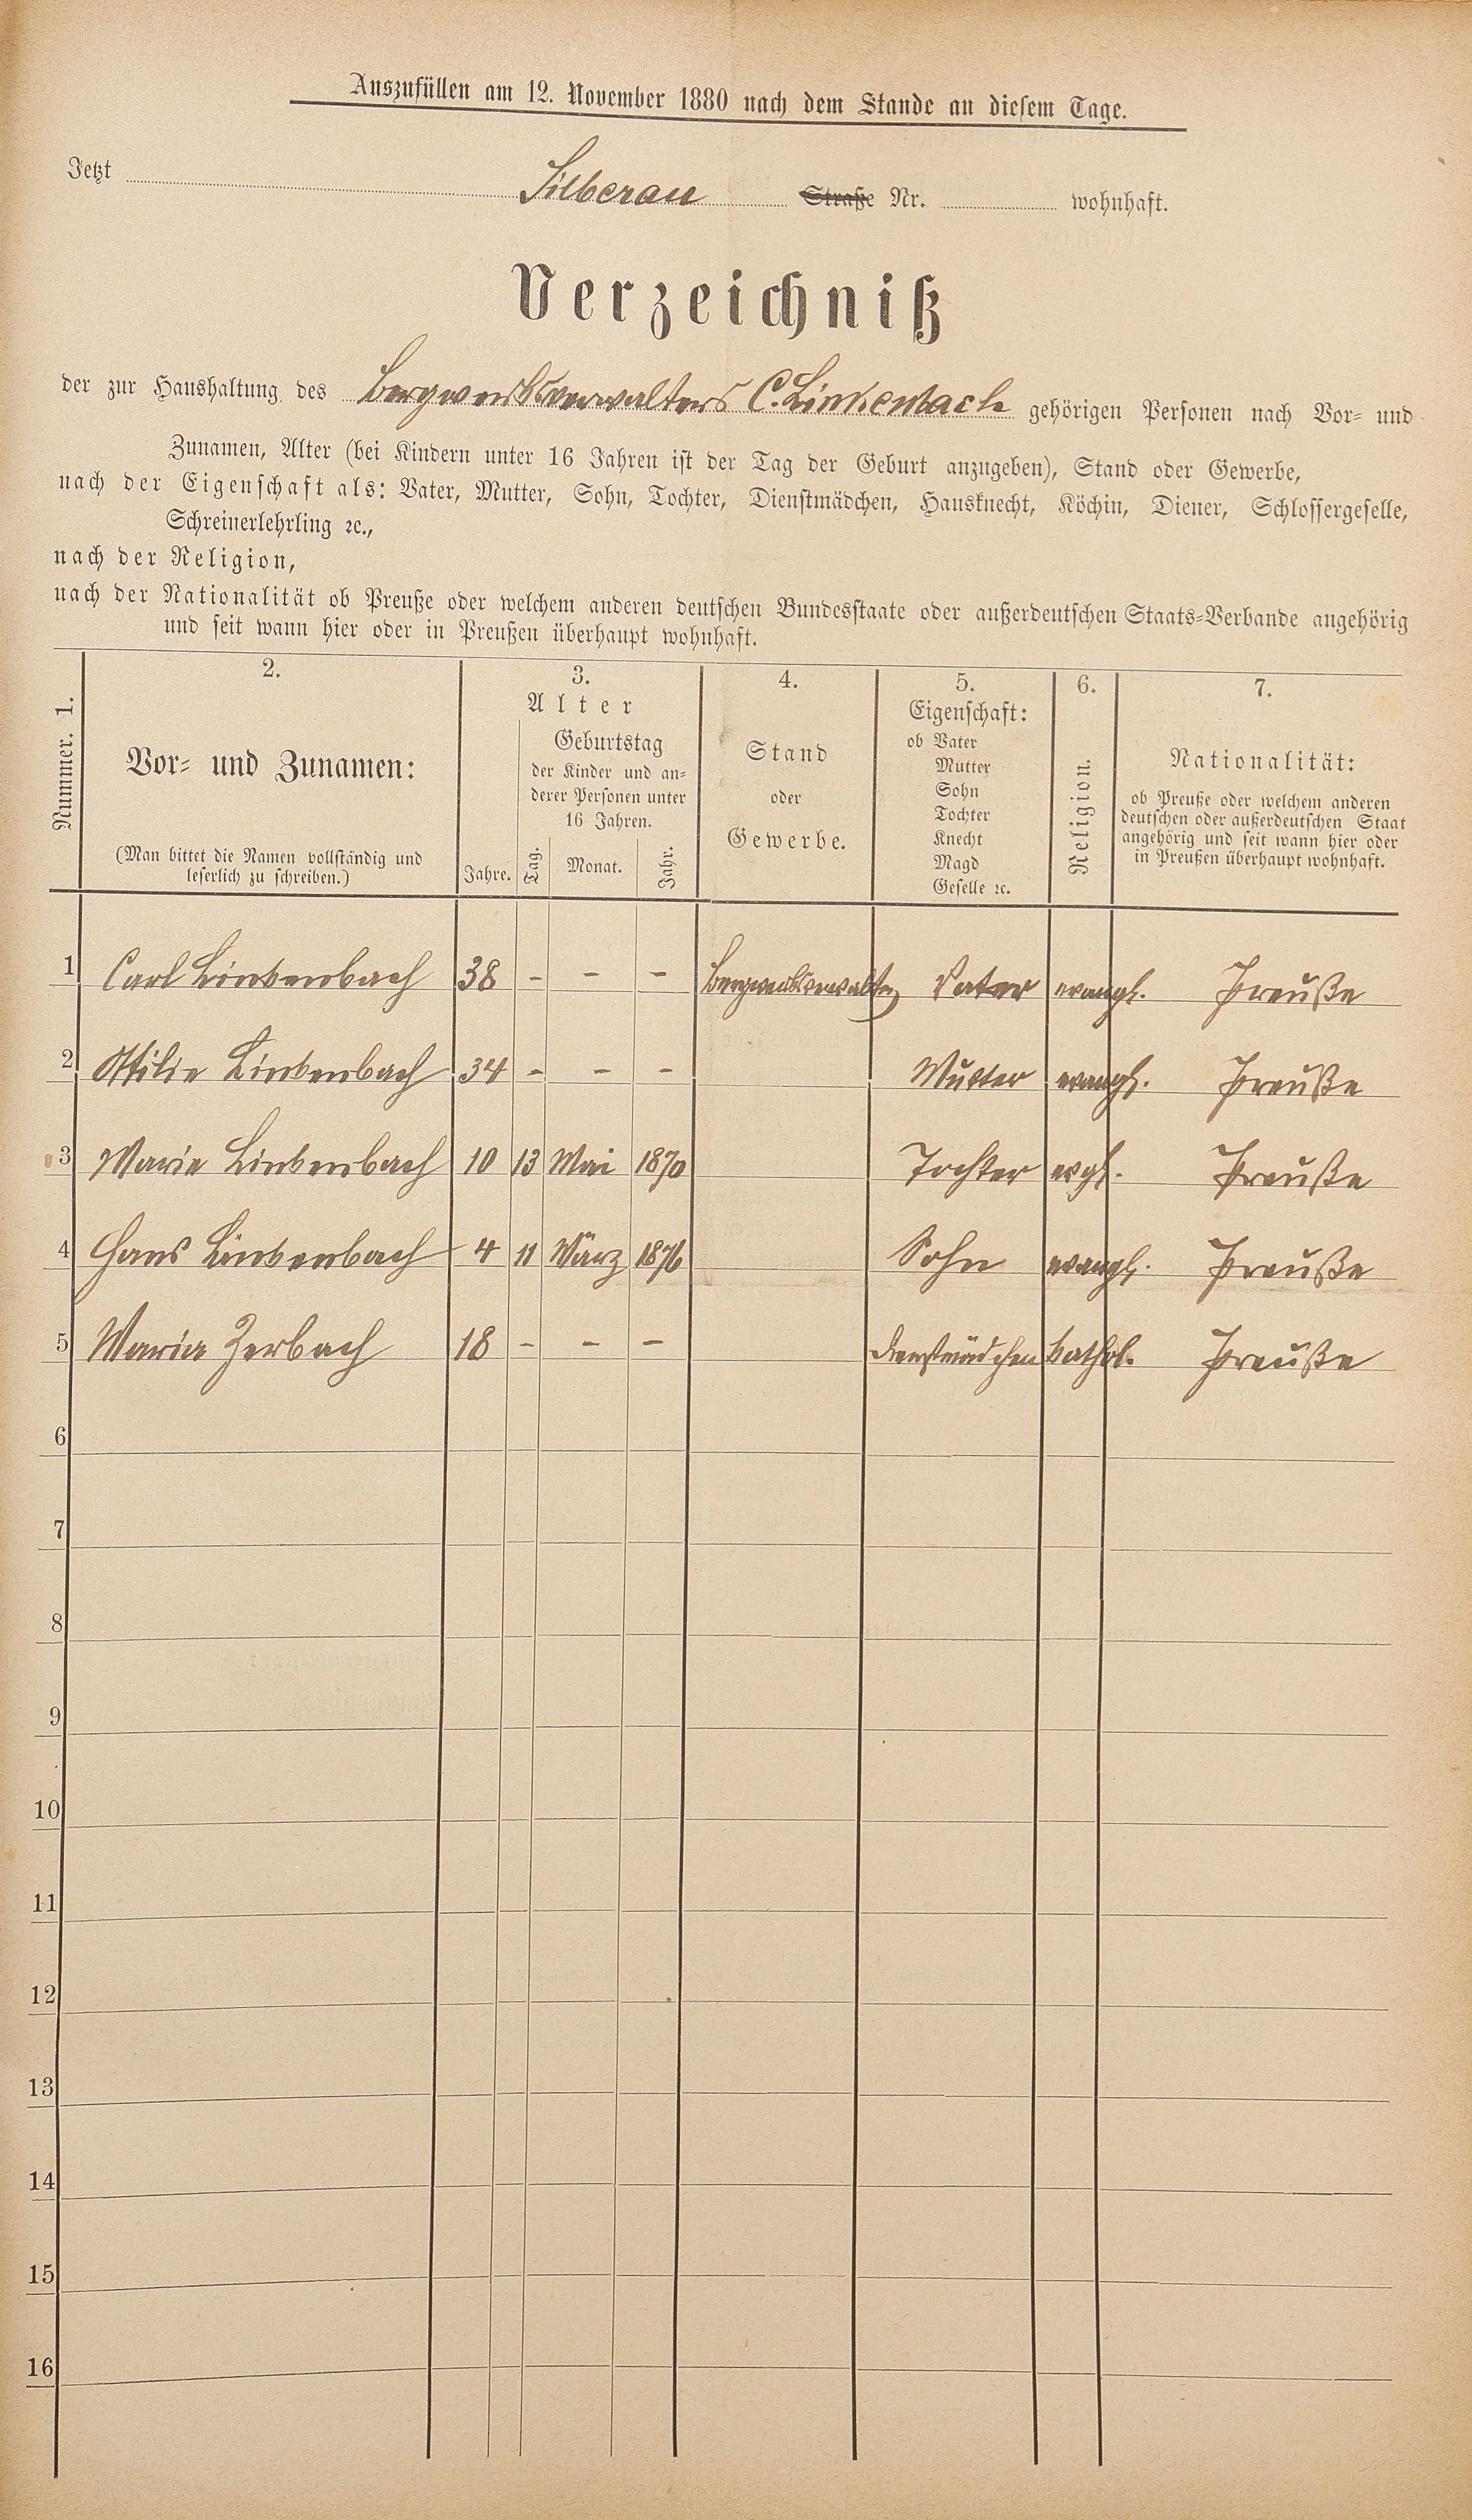 Auszufüllen am 12. November 1880 nach dem Stande an diesem Tage.
Jetzt Silberau Straße Nr. wohnhaft.
Verzeichniß
der zur Haushaltung des Bergwerksverwalters C. Linkenbach gehörigen Personen nach Vor- und
Zunamen, Alter (bei Kindern unter 16 Jahren ist der Tag der Geburt anzugeben), Stand oder Gewerbe,
nach der Eigenschaft als: Vater, Mutter, Sohn, Tochter, Dienstmädchen, Hausknecht, Köchin, Diener, Schlossergeselle,
Schreinerlehrling ꝛc.,
nach der Religion,
nach der Nationalität ob Preuße oder welchem anderen deutschen Bundesstaate oder außerdeutschen Staats-Verbande angehörig
und seit wann hier oder in Preußen überhaupt wohnhaft.
Nummer. 1.
2.
Vor- und Zunamen:
(Man bittet die Namen vollständig und
leserlich zu schreiben.)
3.
Alter
Jahre.
Geburtstag
der Kinder und an-
derer Personen unter
16 Jahren.
Tag. Monat. Jahr.
4.
Stand
oder
Gewerbe.
5.
Eigenschaft:
ob Vater
Mutter
Sohn
Tochter
Knecht
Magd
Geselle ꝛc.
6.
Religion.
7.
Nationalität:
ob Preuße oder welchem anderen
deutschen oder außerdeutschen Staat
angehörig und seit wann hier oder
in Preußen überhaupt wohnhaft.
1 Carl Linkenbach 38 - - - Bergwerksverwalter Vater evangl. Preuße
2 Ottilie Linkenbach 34 - - - Mutter evangl. Preuße
3 Marie Linkenbach 10 13 Mai 1870 Tochter evgl. Preuße
4 Hans Linkenbach 4 11 März 1876 Sohn evangl. Preuße
5 Maria Zerbach 18 - - - Dienstmädchen kathol. Preuße
6
7
8
9
10
11
12
13
14
15
16